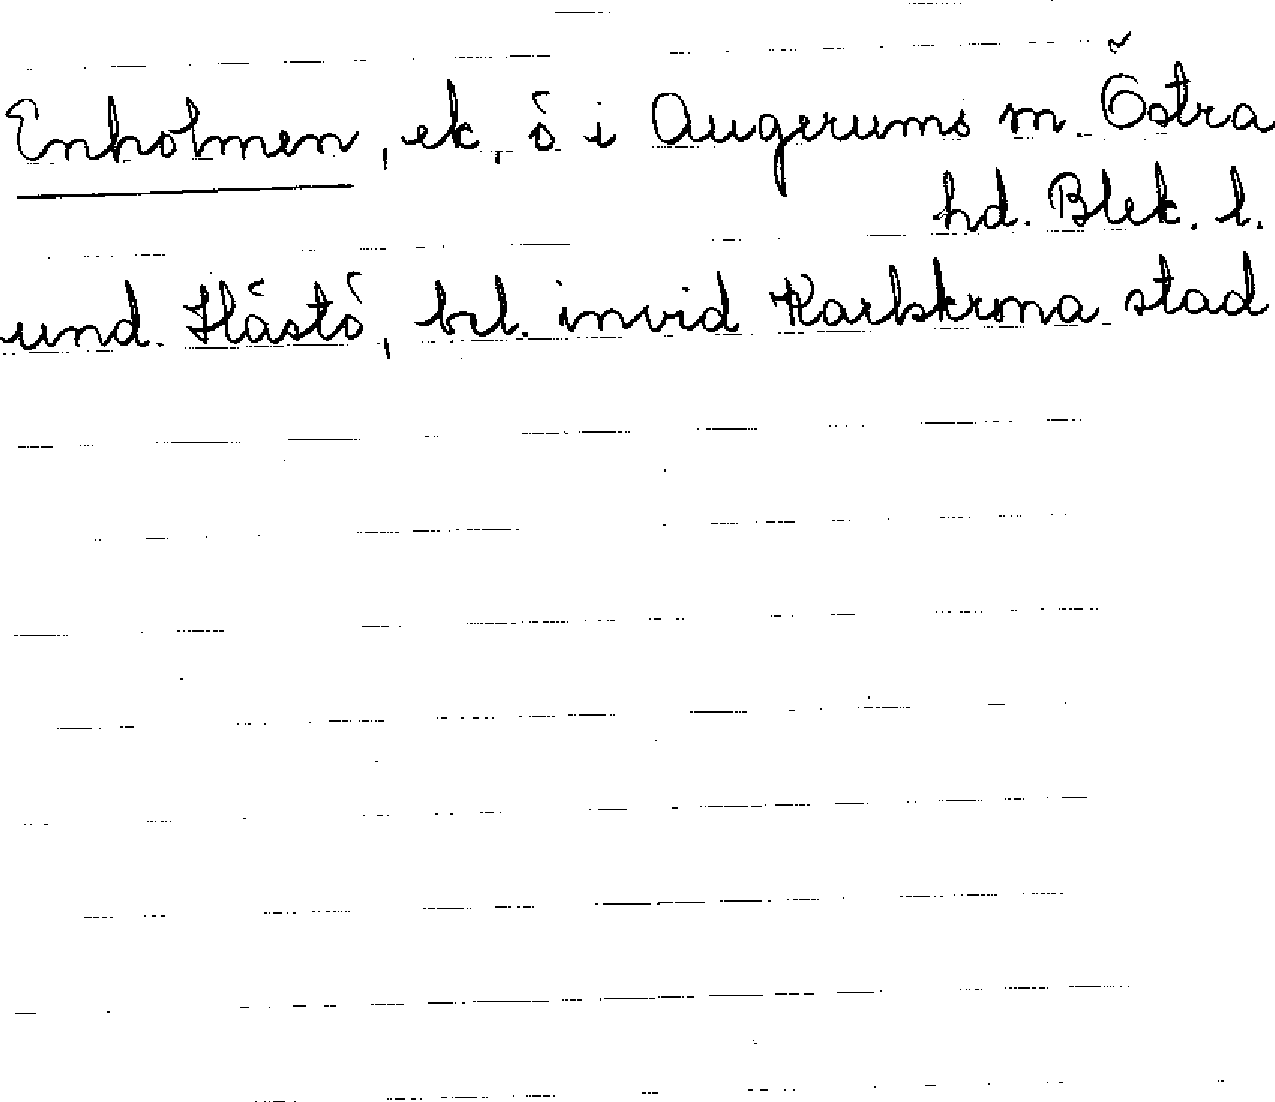 Enholmen, ek. ö i Augerums sn. Östra
hd. Blek. l.
und. Hästö, bel. invid Karlskrona stad